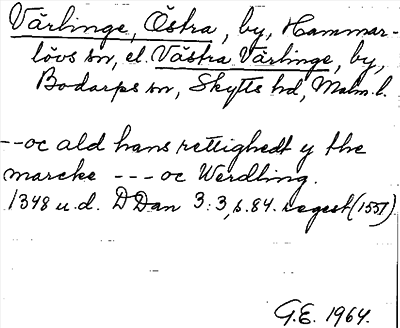 Värlinge, Östra, by, Hammar-
lövs sn, el. Västra Värlinge, by,
Bodarps sn, Skytts hd, Malm. l.
--oc ald hans rettighedt y the
marcke --- oc Werdling.
1348 u.d. DDan 3:3, s. 84. regest (1551)
G.E. 1964.